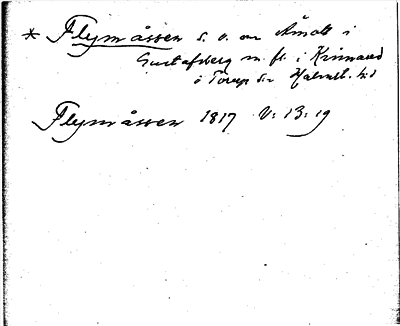 * Flymåssen s. o. om Åmot i
Gustafsberg m. fl. i Kinnared
o Torup sn Halmst. hd
Flymåssen 1817 V: 13: 19